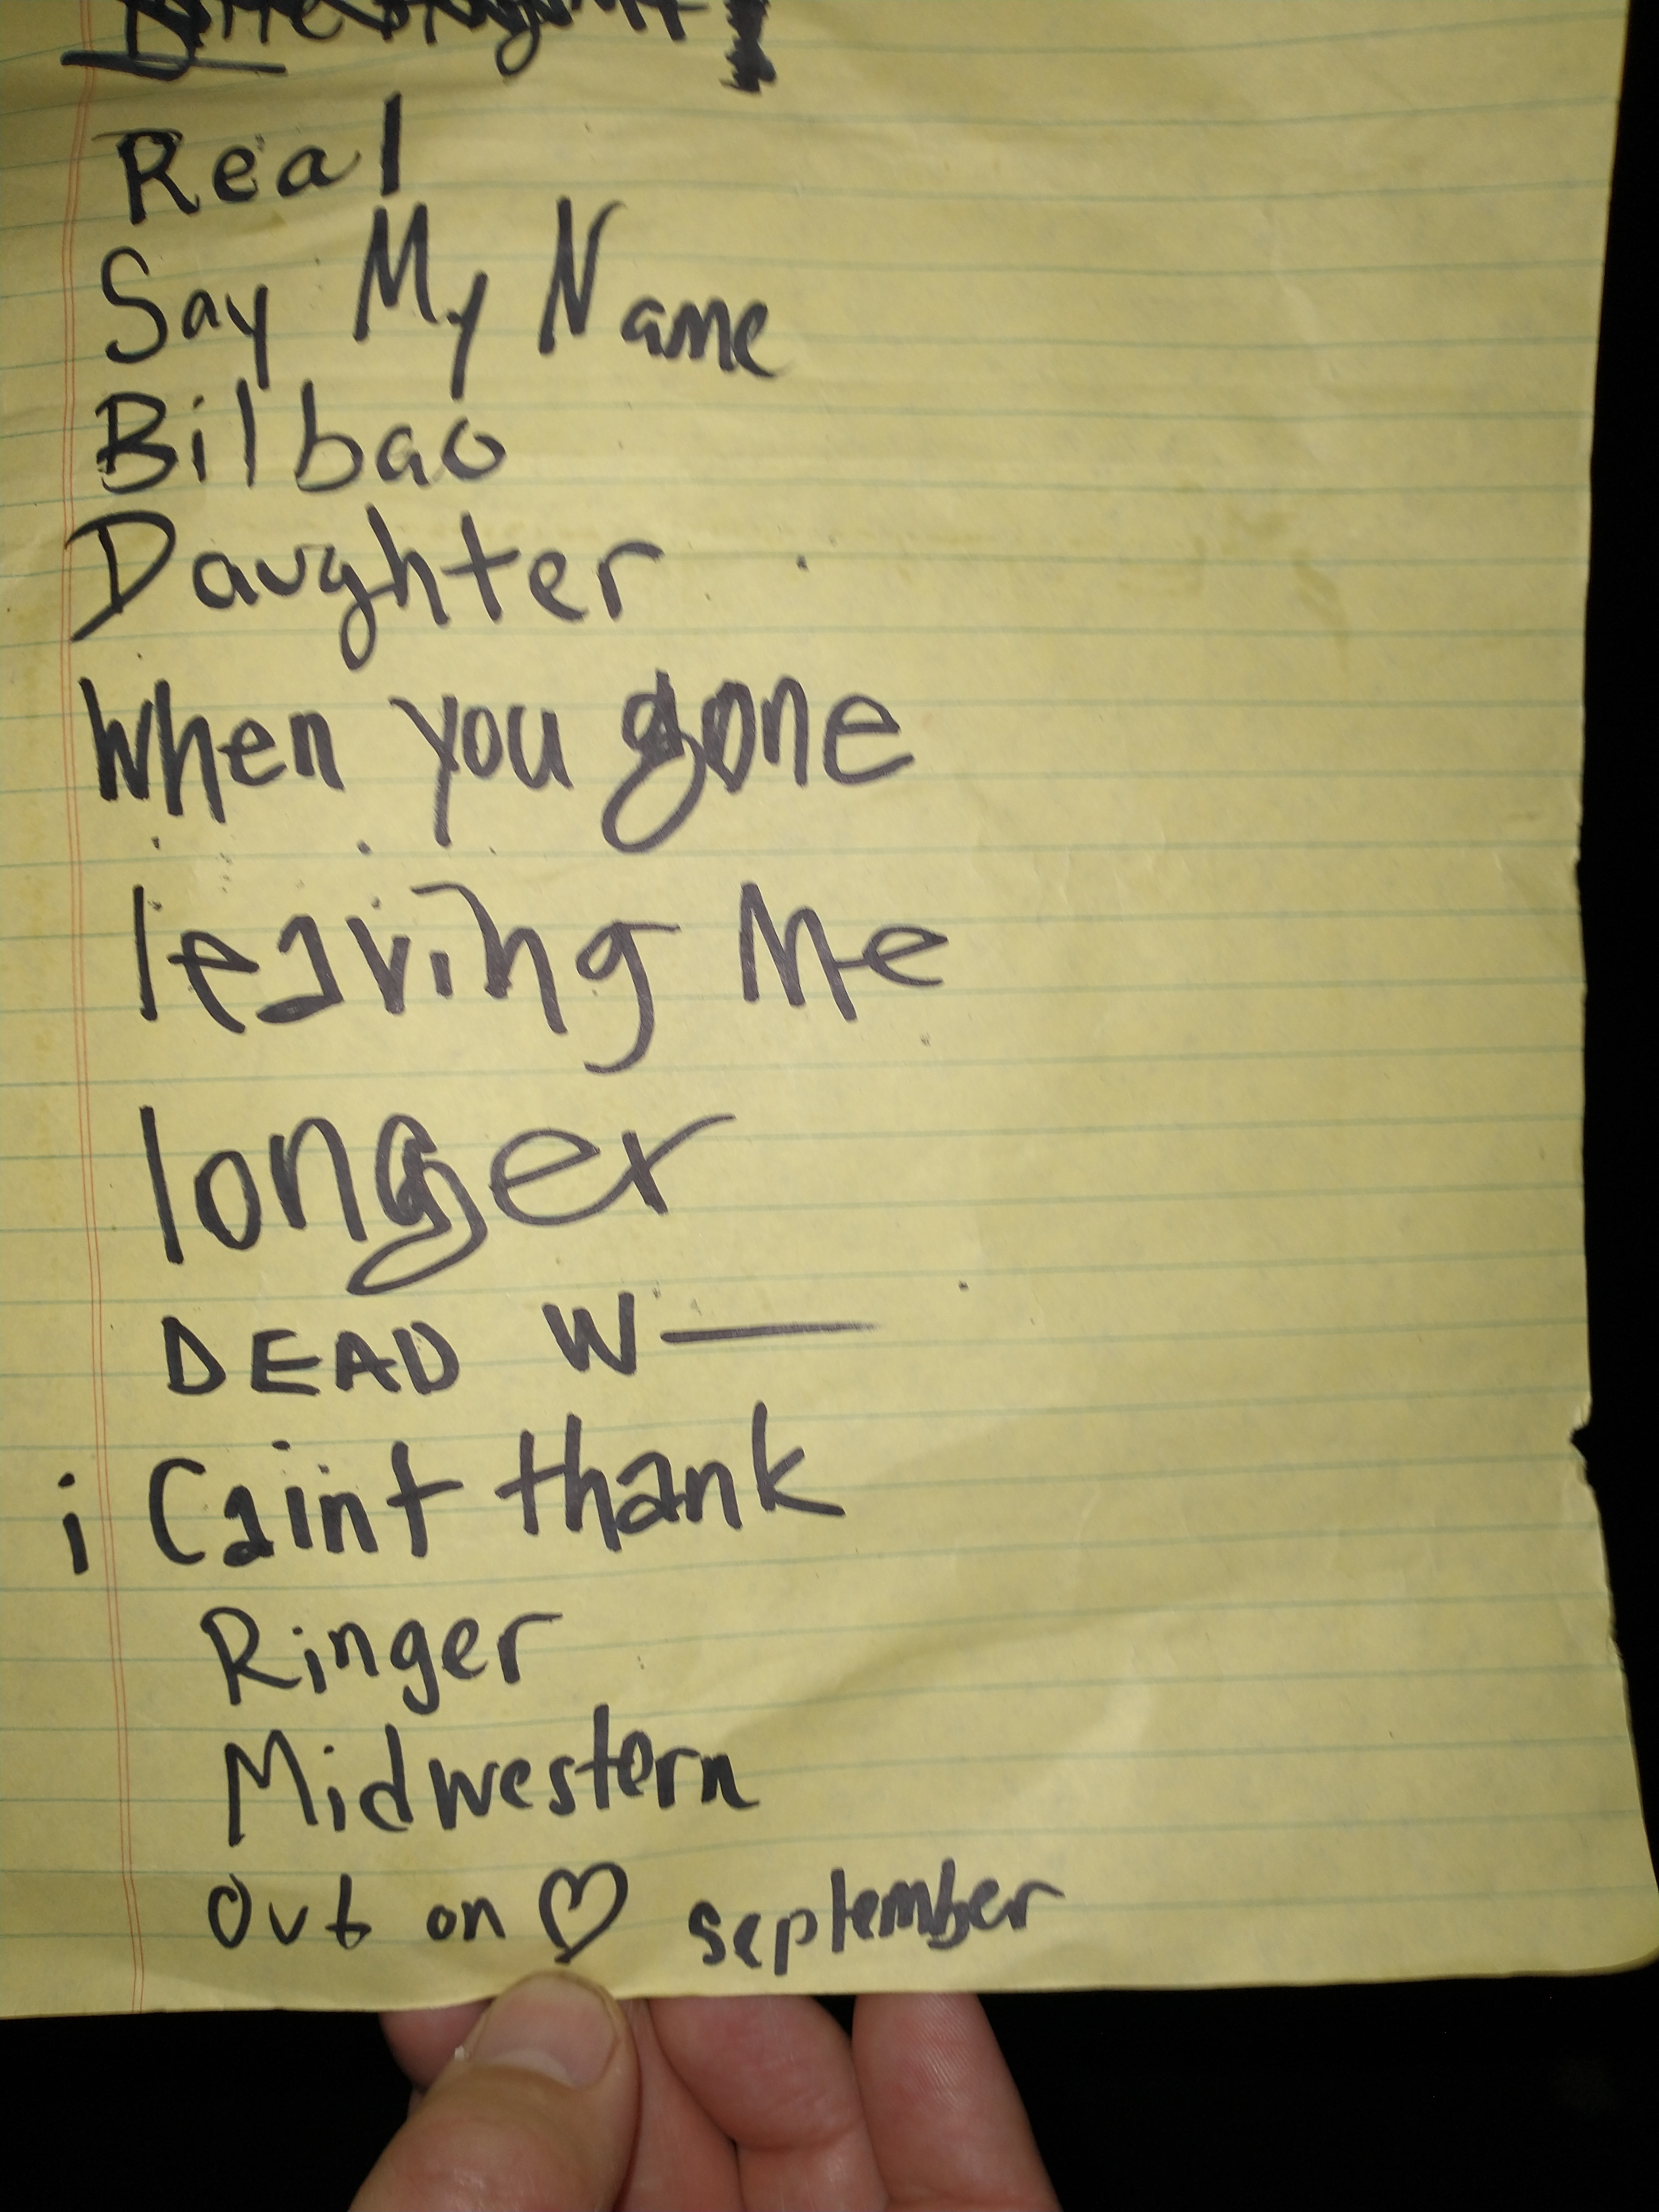 Real
Say My Name
Bilbao
Daughter
When you gone
leaving Me
longer
DEAD W—
i Caint thank
Ringer
Midwestern
Out on ♡ september